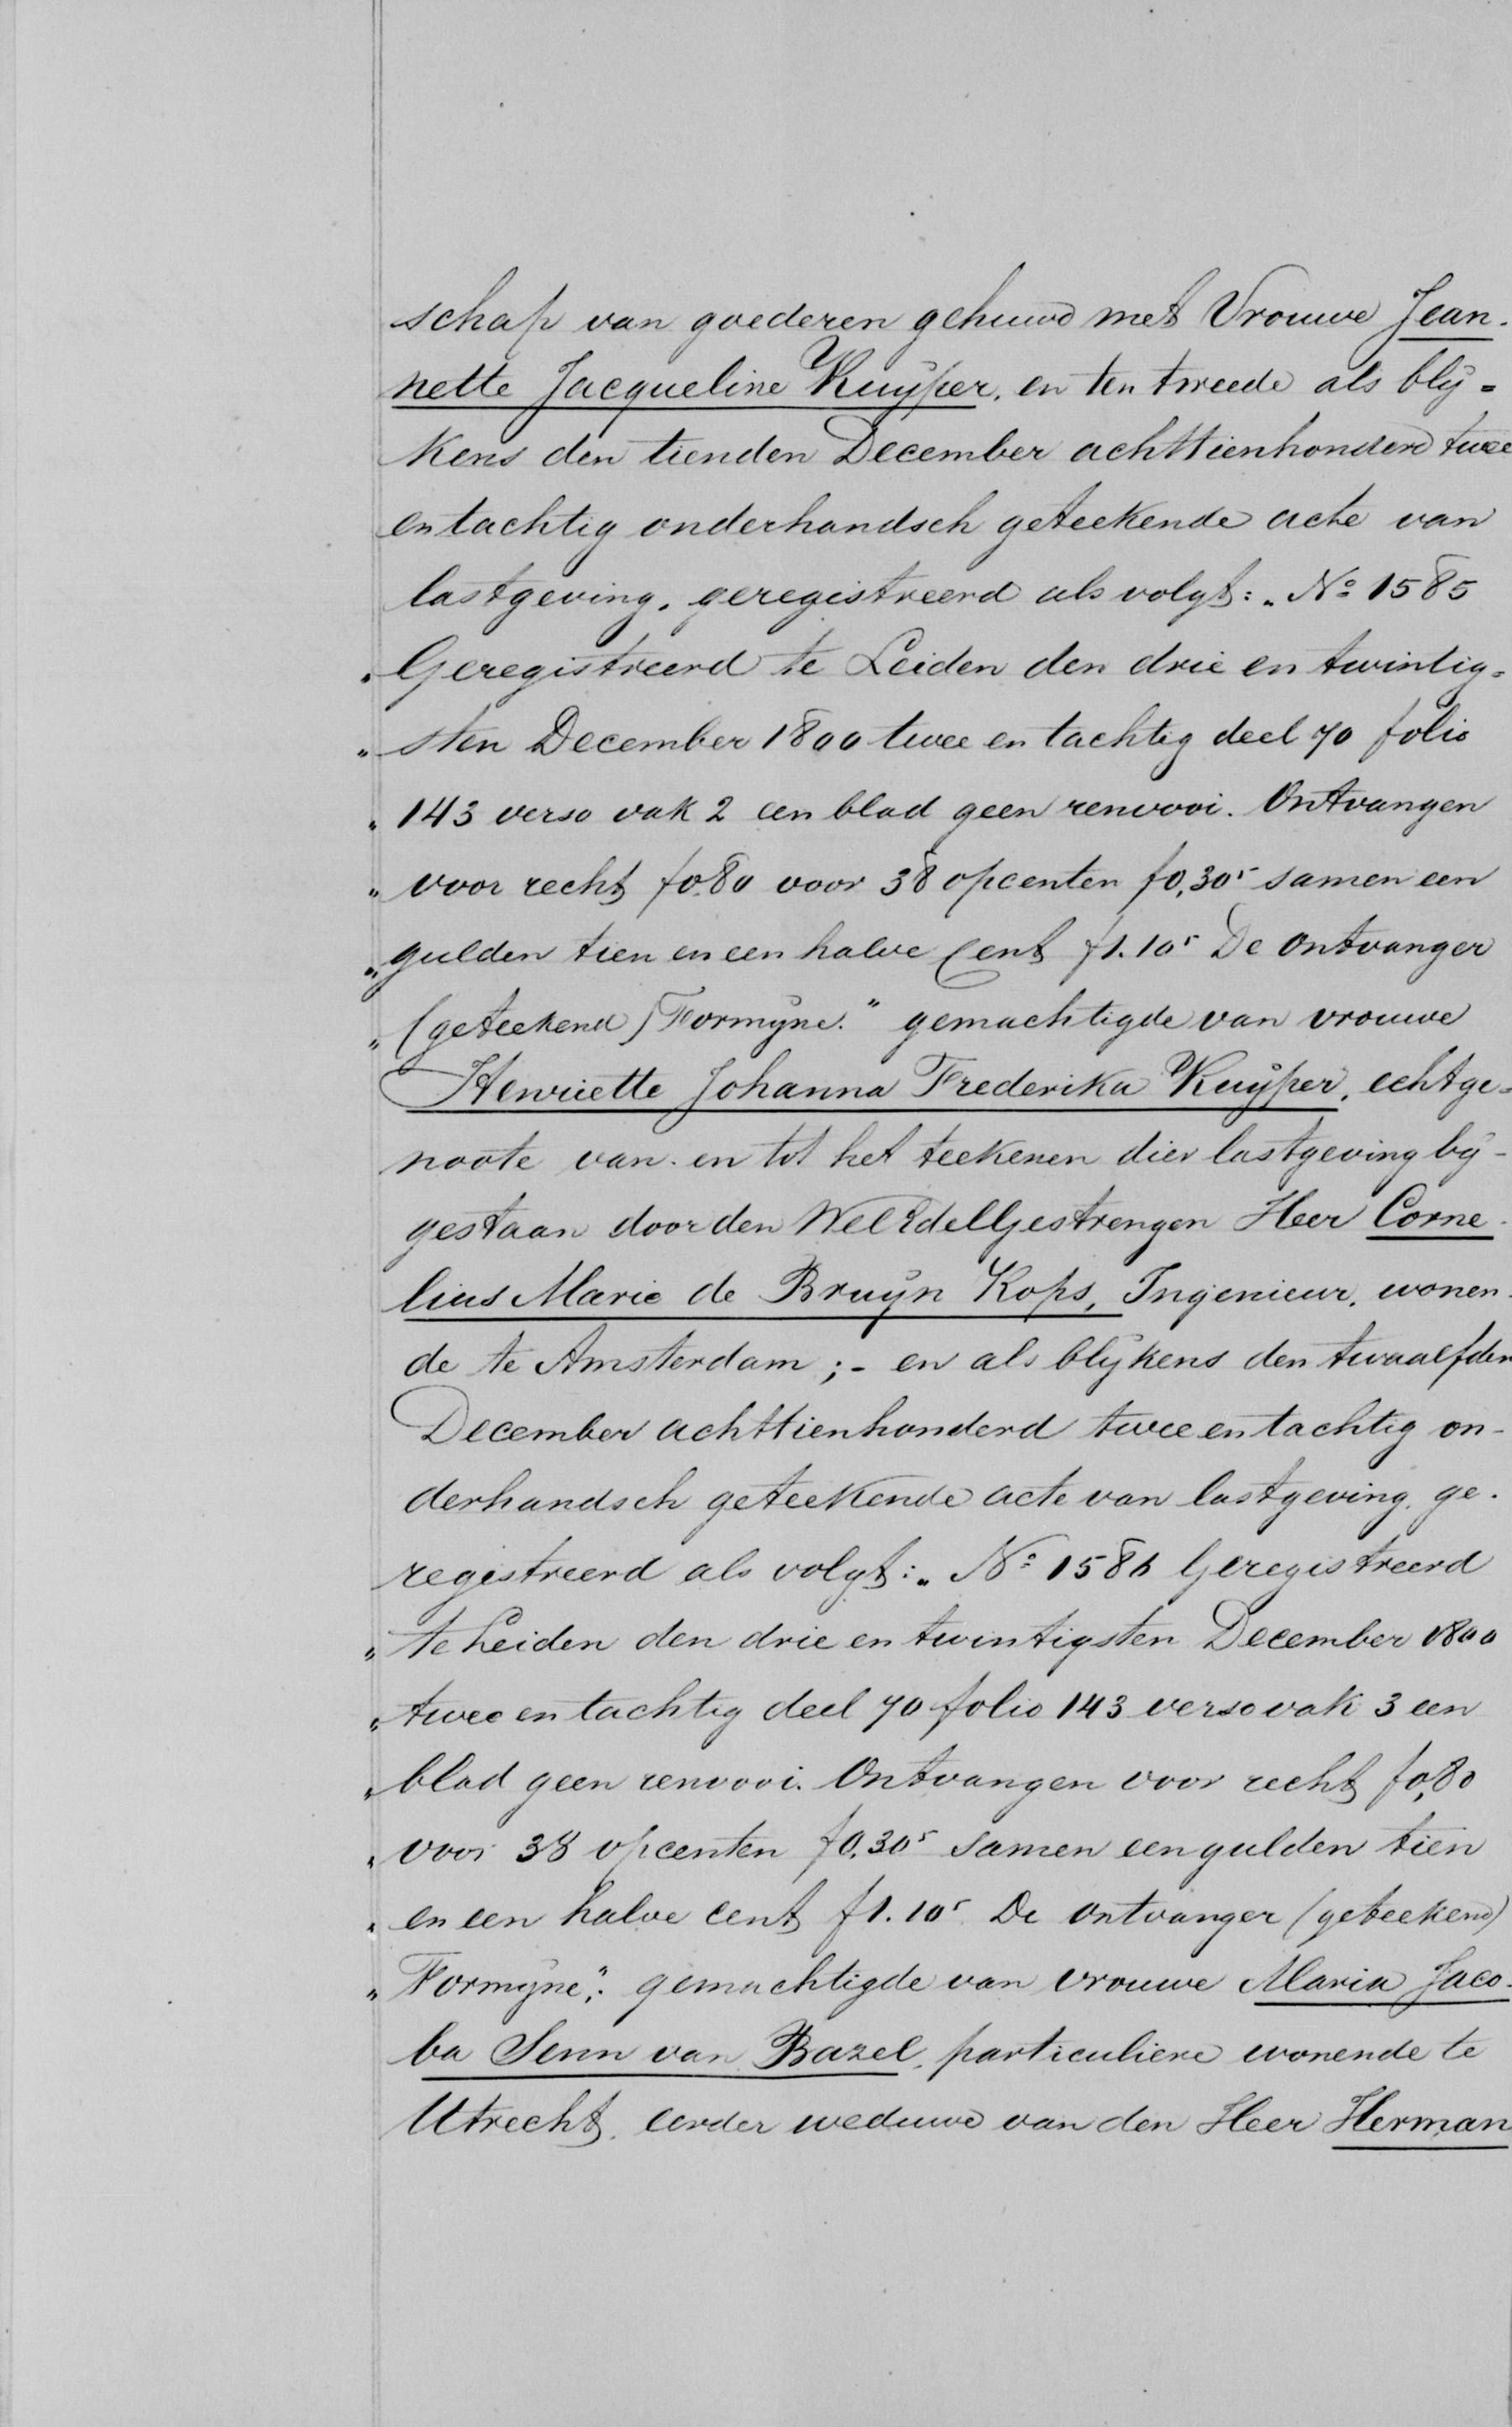 schap van goederen gehuwd met Vrouwe Jean-
nette Jacqueline Kuyper, en ten tweede als bly=
kens den tienden December achttienhonderd twee
en tachtig onderhandsch geteekende acte van
lastgeving, geregistreerd als volgt: „No 1585
„Geregistreerd te Leiden den drie en twintig=
„sten December 1800 twee en tachtig deel 70 folio
„143 verso vak 2 een blad geen renvooi. Ontvangen
„voor recht f0.80 voor 38 opcenten f0,30⁵ samen een
„gulden tien en een halve Cent f1.10⁵ De Ontvanger
„(geteekend) Formyne.” gemachtigde van vrouwe
Henriette Johanna Frederika Kuyper, echtge=
noote van en tot het teekenen dier lastgeving by-
gestaan door den WelEdelGestrengen Heer Corne-
lius Marie de Bruyn Kops, Ingenieur, wonen-
de te Amsterdam ;- en als blykens den twaalfden
December achttienhonderd twee en tachtig on-
derhandsch geteekende acte van lastgeving, ge-
registreerd als volgt: „No 1586 Geregistreerd
„te Leiden den drie en twintigsten December 1800
„twee en tachtig deel 70 folio 143 verso vak 3 een
„blad geen renvooi. Ontvangen voor recht f0,80
„voor 38 opcenten f0.30⁵ samen een gulden tien
„en een halve cent f1.10⁵ De Ontvanger (geteekend)
„Formyne”; gemachtigde van vrouwe Maria Jaco-
ba Senn van Bazel, particuliere wonende te
Utrecht, eerder weduwe van den Heer Herman